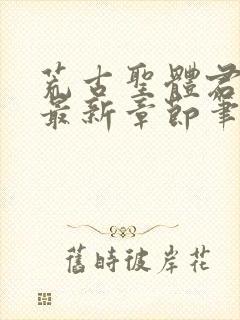 荒古聖體君
最新章節筆
舊時彼岸花